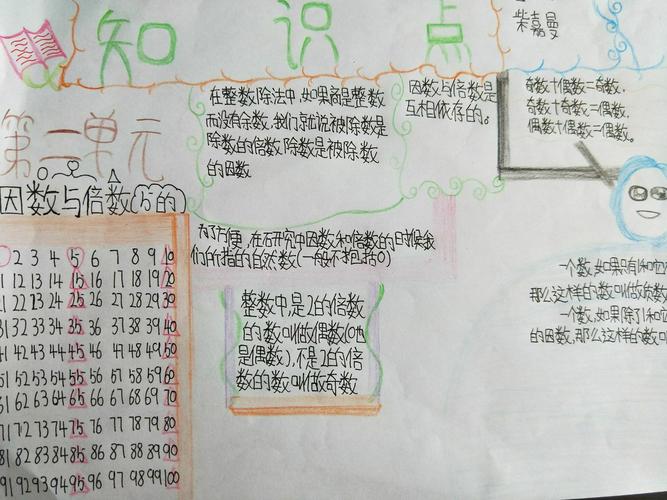 知识点
柴嘉曼
第一单元
因数与倍数(5的
在整数除法中,如果商是整数
而没有余数,我们就说被除数是
除数的倍数,除数是被除数
的因数
因数与倍数是
互相依存的。
奇数+偶数=奇数.
奇数+奇数=偶数.
偶数+偶数=偶数。
为了方便,在研究中因数和倍数的时候我
们所指的自然数(一般不包括0)
整数中,是2的倍数
的数叫做偶数(0也
是偶数),不是2的倍
数的数叫做奇数
一个数,如果只有1和它
那么这样的数叫做质数
一个数,如果除了1和它
的因数,那么这样的数叫
2 3 4 5 6 7 8 9 10
11 12 13 14 15 16 17 18 19 20
21 22 23 24 25 26 27 28 29 30
31 32 33 34 35 36 37 38 39 40
41 42 43 44 45 46 47 48 49 50
51 52 53 54 55 56 57 58 59 60
61 62 63 64 65 66 67 68 69 70
71 72 73 74 75 76 77 78 79 80
81 82 83 84 85 86 87 88 89 90
91 92 93 94 95 96 97 98 99 100